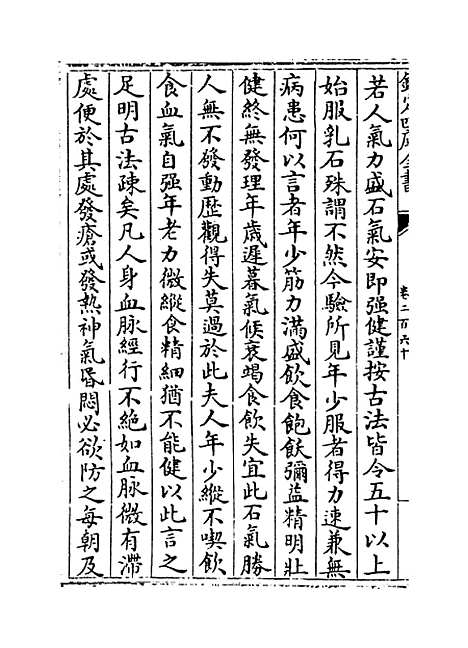 欽定四庫全書
卷二百六十
若人氣力盛石氣安即强健謹按古法皆令五十以上
始服乳石殊謂不然今驗所見年少服者得力速兼無
病患何以言者年少筋力滿盛飲食飽飫彌益精明壯
健終無發理年歲遲暮氣候衰竭食飲失宜此石氣勝
人無不發動歷觀得失莫過於此夫人年少縱不喫飲
食血氣自强年老力微縱食精細猶不能健以此言之
足明古法疎矣凡人身血脉經行不絶如血脉微有滯
處便於其處發瘡或發熱神氣昏悶必欲防之每朝及